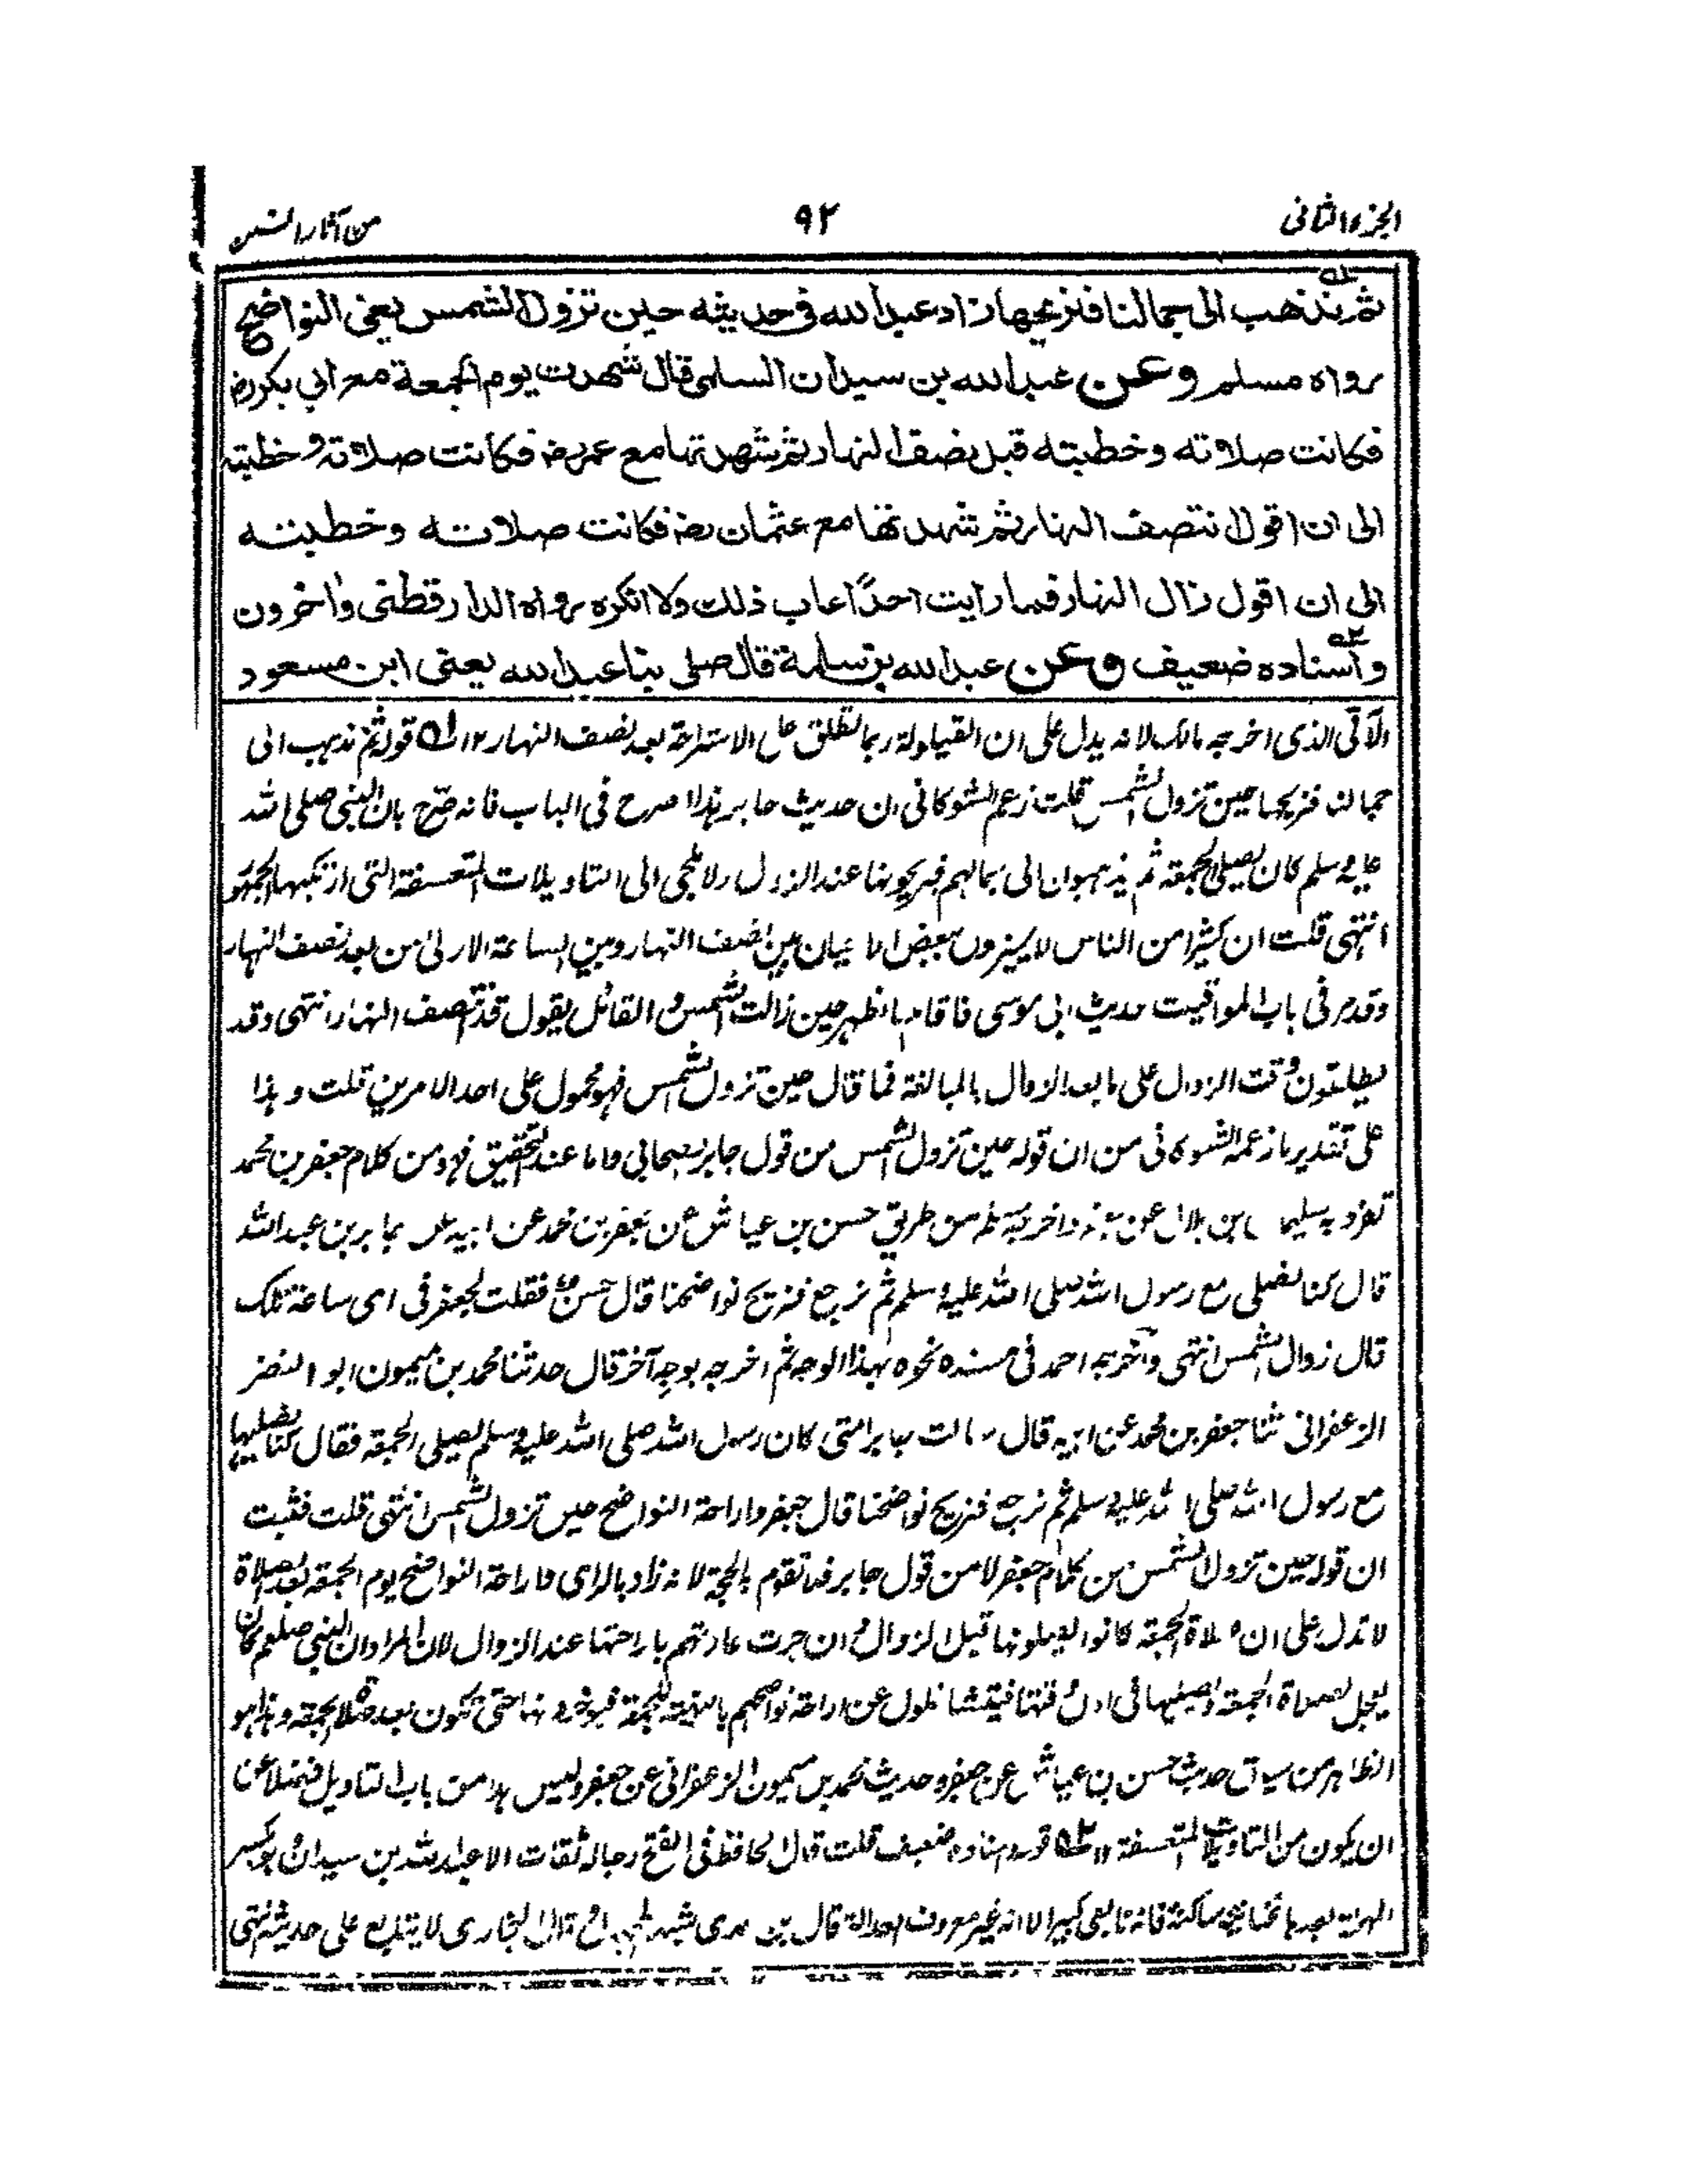 الجزء الثانى
٩٢
من آثار السنن
ثم نذهب الى جمالنا فنريحها زاد عبد الله فى حديثه حين تزول الشمس يعنى النواضح
رواه مسلم وعن عبد الله بن سيدان السلمى قال شهدت يوم الجمعة مع ابي بكر رض
فكانت صلاته وخطبته قبل نصف النهار ثم شهدتها مع عمر رض فكانت صلاته وخطبته
الى ان اقول انتصف النهار ثم شهدتها مع عثمان رض فكانت صلاته وخطبته
الى ان اقول زال النهار فما رايت احدًا عاب ذلك ولا انكره رواه الدارقطنى واٰخرون
واسناده ضعيف وعن عبد الله بن سلمة قال صلى بنا عبد الله يعنى ابن مسعود
الآتى الذى اخرجه مالك لانه يدل على ان القيلولة ربما تطلق على الاستراحة بعد نصف النهار ١٢ قوله ثم نذهب الى
جمالنا فنريحها حين تزول الشمس قلت زعم الشوكانى ان حديث جابر هذا اصرح فى الباب فانه صرح بان النبى صلى الله
عليه وسلم كان يصلى الجمعة ثم يذهبون الى جمالهم فيريحونها عند الزوال ولا ملجى الى التاويلات المتعسفة التى ارتكبها الجمهور
انتهى قلت ان كثيرا من الناس لا يميزون بعض الاحيان بين نصف النهار وبين الساعة الاولى من بعد نصف النهار
وقد مر فى باب المواقيت حديث ابى موسى فاقام بالظهر حين زالت الشمس والقائل يقول قد انتصف النهار انتهى وقد
يطلقون وقت الزوال على ما بعد الزوال بالمبالغة فما قال حين تزول الشمس فهو محمول على احد الامرين قلت وهذا
على تقدير ما زعمه الشوكانى من ان قوله حين تزول الشمس من قول جابر الصحابى واما عند التحقيق فهو من كلام جعفر بن محمد
تفرد به سليمان بن بلال عن جعفر واخرج مسلم من طريق حسن بن عياش عن جعفر بن محمد عن ابيه عن جابر بن عبد الله
قال كنا نصلى مع رسول الله صلى الله عليه وسلم ثم نرجع فنريح نواضحنا قال حسن فقلت لجعفر فى اى ساعة تلك
قال زوال الشمس انتهى واخرجه احمد فى مسنده نحوه بهذا الوجه ثم اخرجه بوجه آخر قال حدثنا محمد بن ميمون ابو النضر
الزعفرانى ثنا جعفر بن محمد عن ابيه قال سالت جابرا متى كان رسول الله صلى الله عليه وسلم يصلى الجمعة فقال كنا نصليها
مع رسول الله صلى الله عليه وسلم ثم نرجع فنريح نواضحنا قال جعفر واراحة النواضح حين تزول الشمس انتهى قلت فثبت
ان قوله حين تزول الشمس من كلام جعفر لا من قول جابر فما تقوم به الحجة لانه زاد بالراى واراحة النواضح يوم الجمعة بعد الصلاة
لا تدل على ان صلاة الجمعة كانوا يصلونها قبل الزوال وان جرت عادتهم باراحتها عند الزوال لان المراد ان النبى صلعم كان
يعجل لصلاة الجمعة ويصليها فى اول وقتها عن اراحة نواضحهم للجمعة حتى تكون بعد صلاة الجمعة وهذا هو
الظاهر من سياق حديث حسن بن عياش عن جعفر وحديث محمد بن ميمون الزعفرانى عن جعفر وليس هذا من باب التاويل فضلا عن
ان يكون من التاويلات المتعسفة ١٢ قوله واسناده ضعيف قلت قال الحافظ فى الفتح رجاله ثقات الا عبد الله بن سيدان وهو بكسر
المهملة بعدها تحتانية ساكنة فانه تابعى كبير الا انه غير معروف العدالة قال بن عدى شبه المجهول قال البخارى لا يتابع على حديثه انتهى